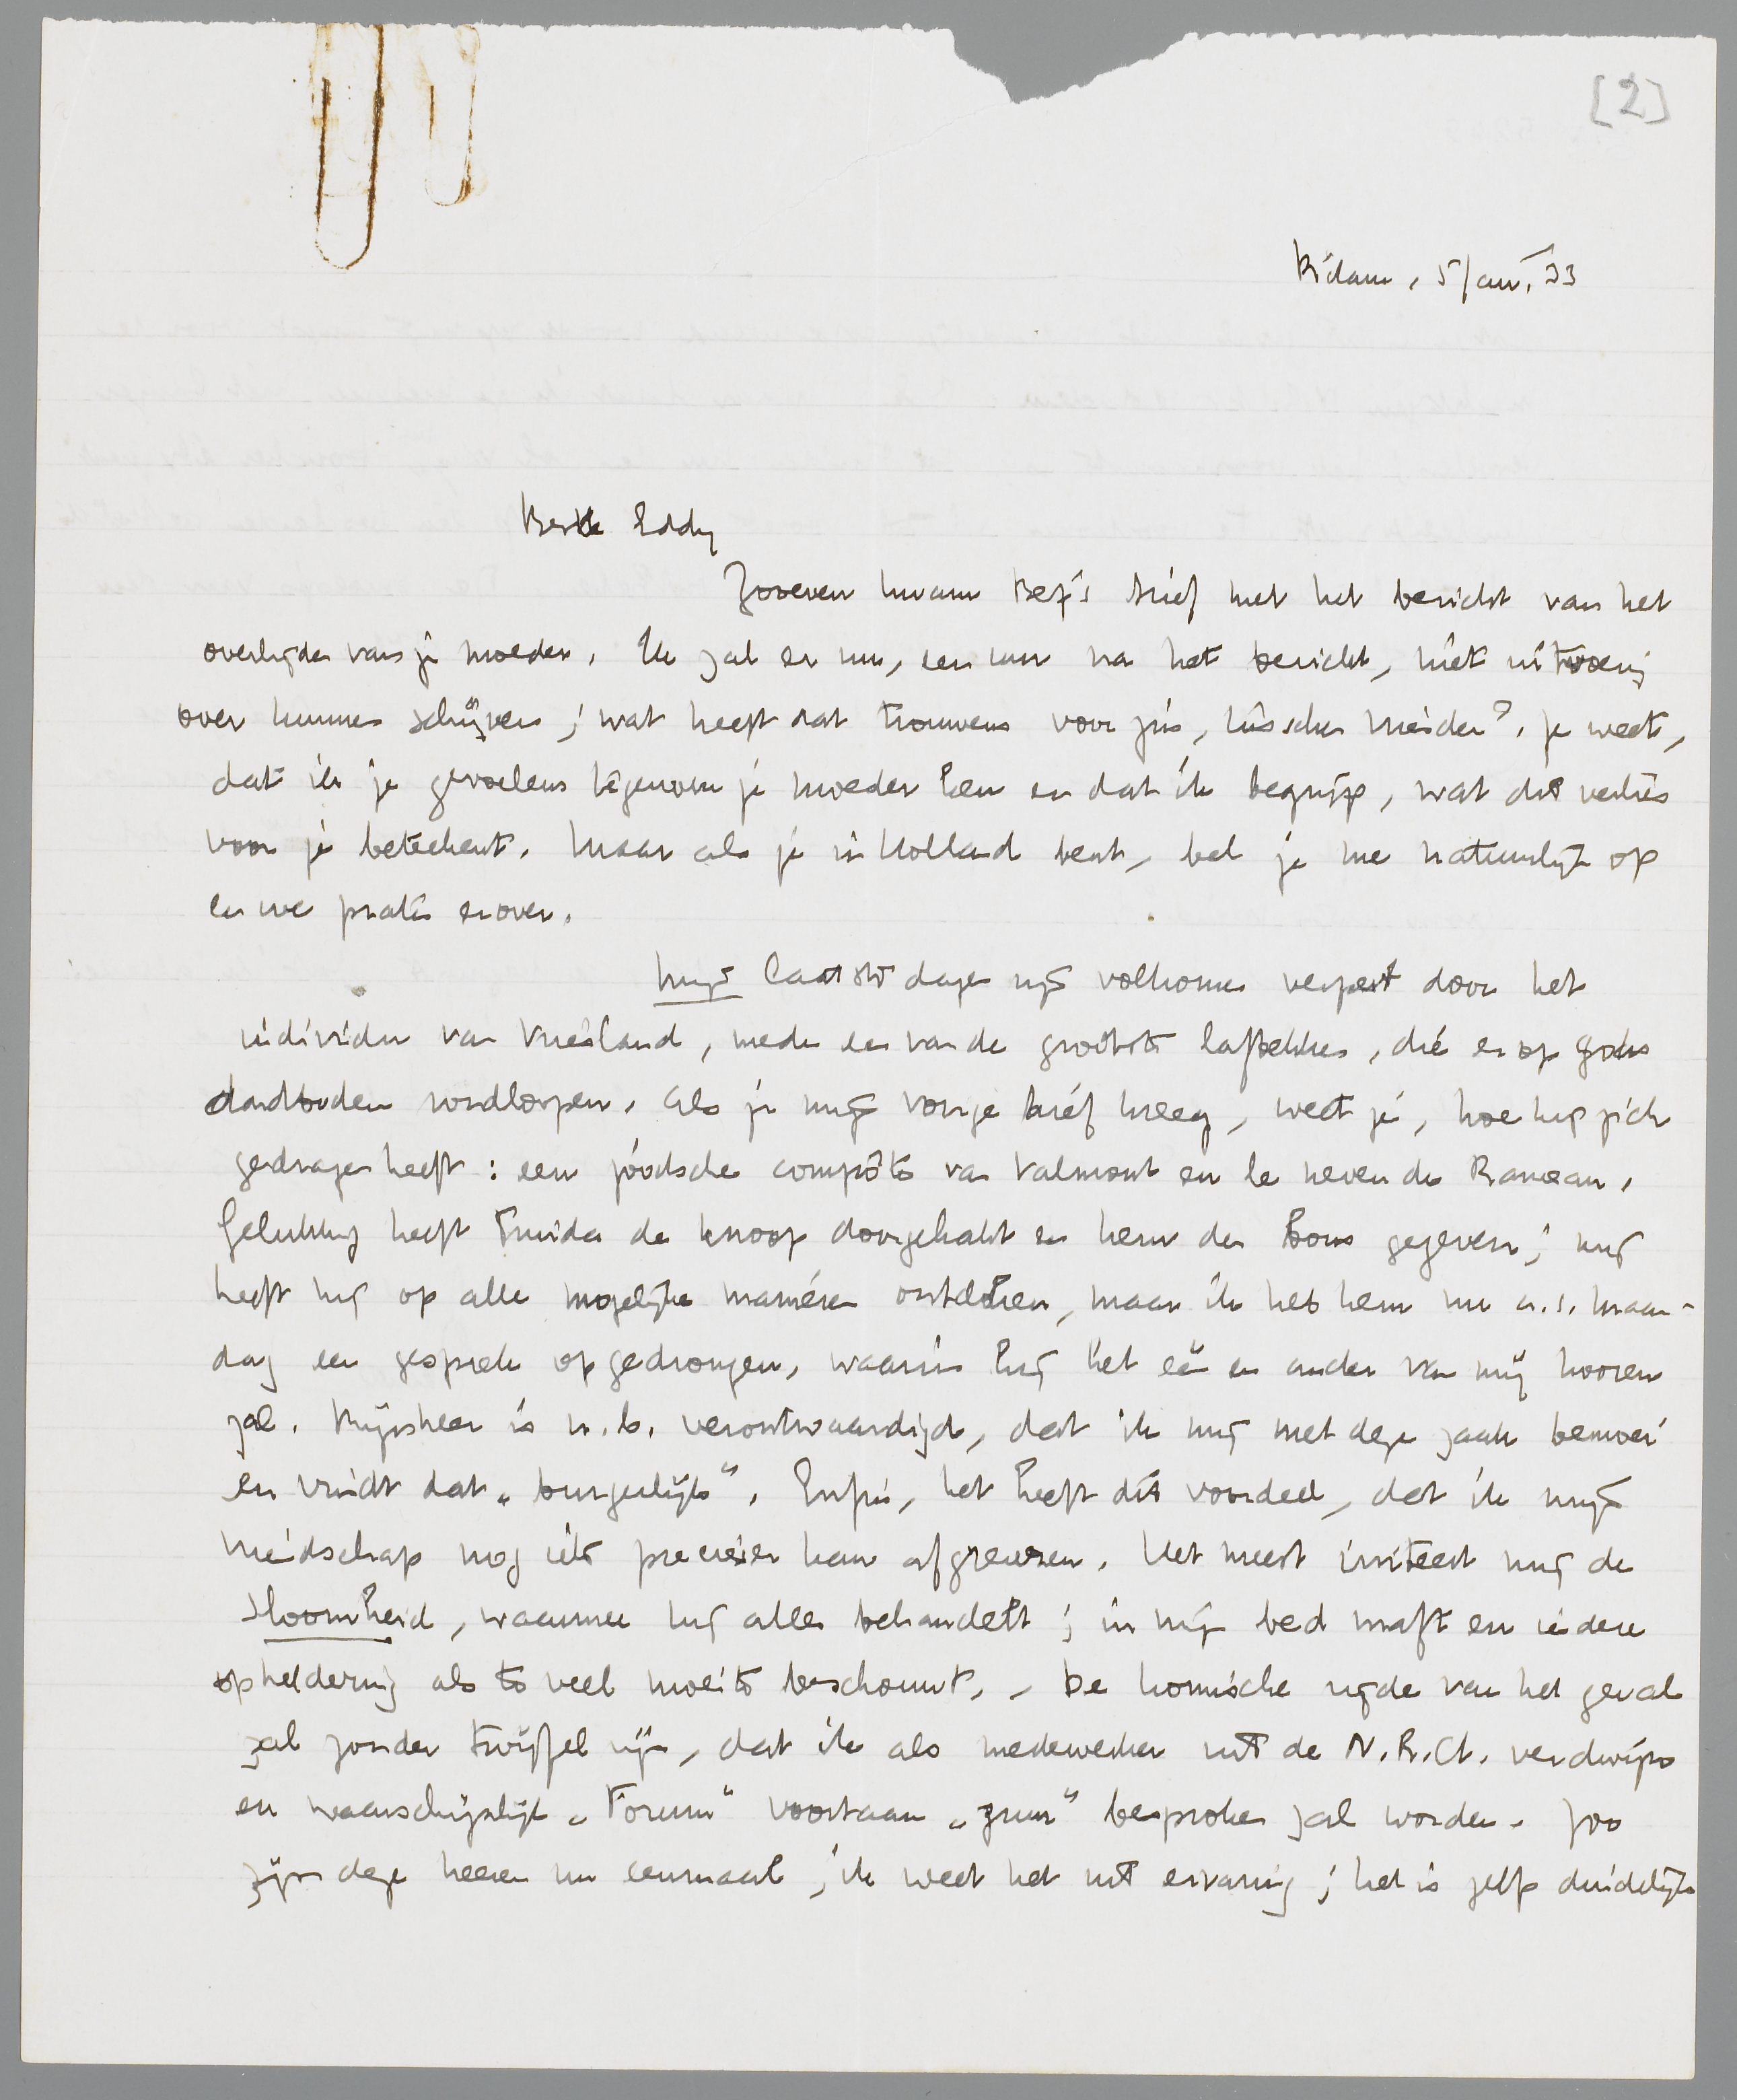 [2]
R'dam, 5 Jan. '33
Beste Eddy
Zoeven kwam Bep's brief met het bericht van het
overlijden van je moeder. Ik zal er nu, een uur na het bericht, niet uitvoerig
over kunnen schrijven; wat heeft dat trouwens voor zin, tusschen vrienden? Je weet,
dat ik je gevoelens tegenover je moeder ken en dat ik begrijp, wat dit verlies
voor je beteekent. Maar als je in Holland bent, bel je me natuurlijk op
en we praten erover.
Mijn laatste dagen zijn volkomen verpest door het
individu van Vriesland, mede een van de grootste laffekken, die er op gods
aardboden rondloopen. Als je mijn vorige brief kreeg, weet je, hoe hij zich
gedragen heeft: een joodsche compôte van Valmont en le neveu de Rameau.
Gelukkig heeft Truida de knoop doorgehakt en hem de bons gegeven; mij
heeft hij op alle mogelijke manieren ontdoken, maar ik heb hem nu a.s. Maan-
dag een gesprek opgedrongen, waarin hij het een en ander van mij hooren
zal. Mijnheer is n.b. verontwaardigd, dat ik mij met deze zaak bemoei
en vindt dat „burgerlijk". Enfin, het heeft dit voordeel, dat ik mijn
vriendschap nog iets preciezer kan afgrenzen. Het meest irriteert mij de
sloomheid, waarmee hij alles behandelt; in zijn bed maft en iedere
opheldering als te veel moeite beschouwt. - De komische zijde van het geval
zal zonder twijfel zijn, dat ik als medewerker uit de N.R.Ct. verdwijn
en waarschijnlijk „Forum" voortaan „zuur" besproken zal worden. Zoo
zijn deze heeren nu eenmaal, ik weet het uit ervaring; het is zelfs duidelijk